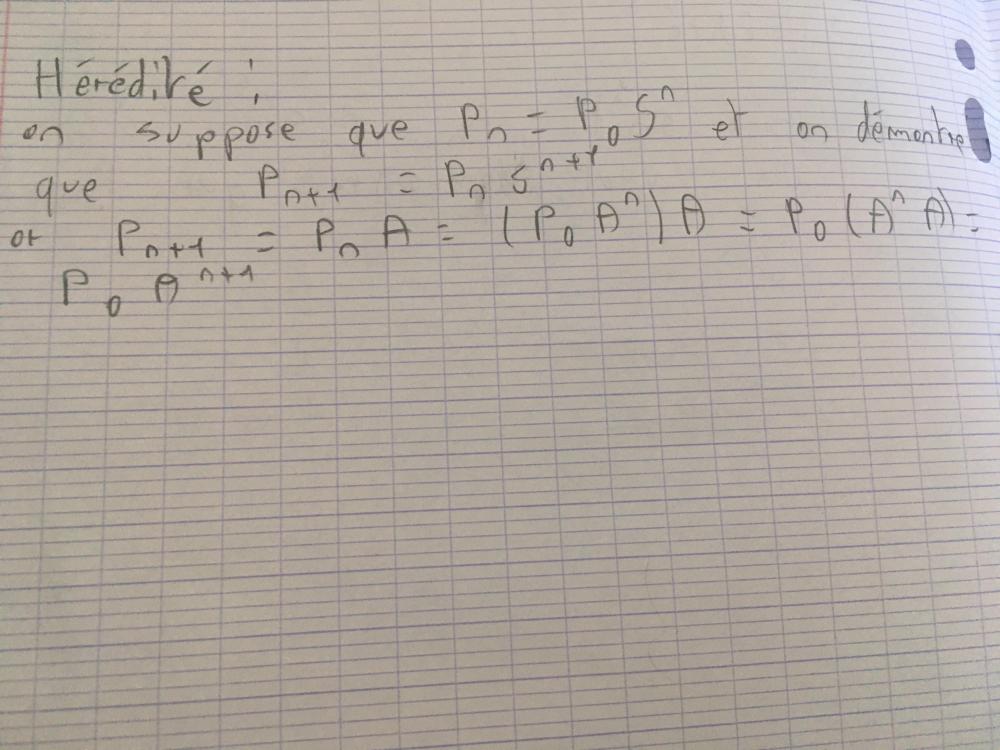 Hérédité :
on suppose que Pₙ = P₀ Sⁿ et on démontre
que Pₙ₊₁ = Pₙ Sⁿ⁺¹
or Pₙ₊₁ = Pₙ A = (P₀ Aⁿ) A = P₀ (Aⁿ A) =
P₀ Aⁿ⁺¹